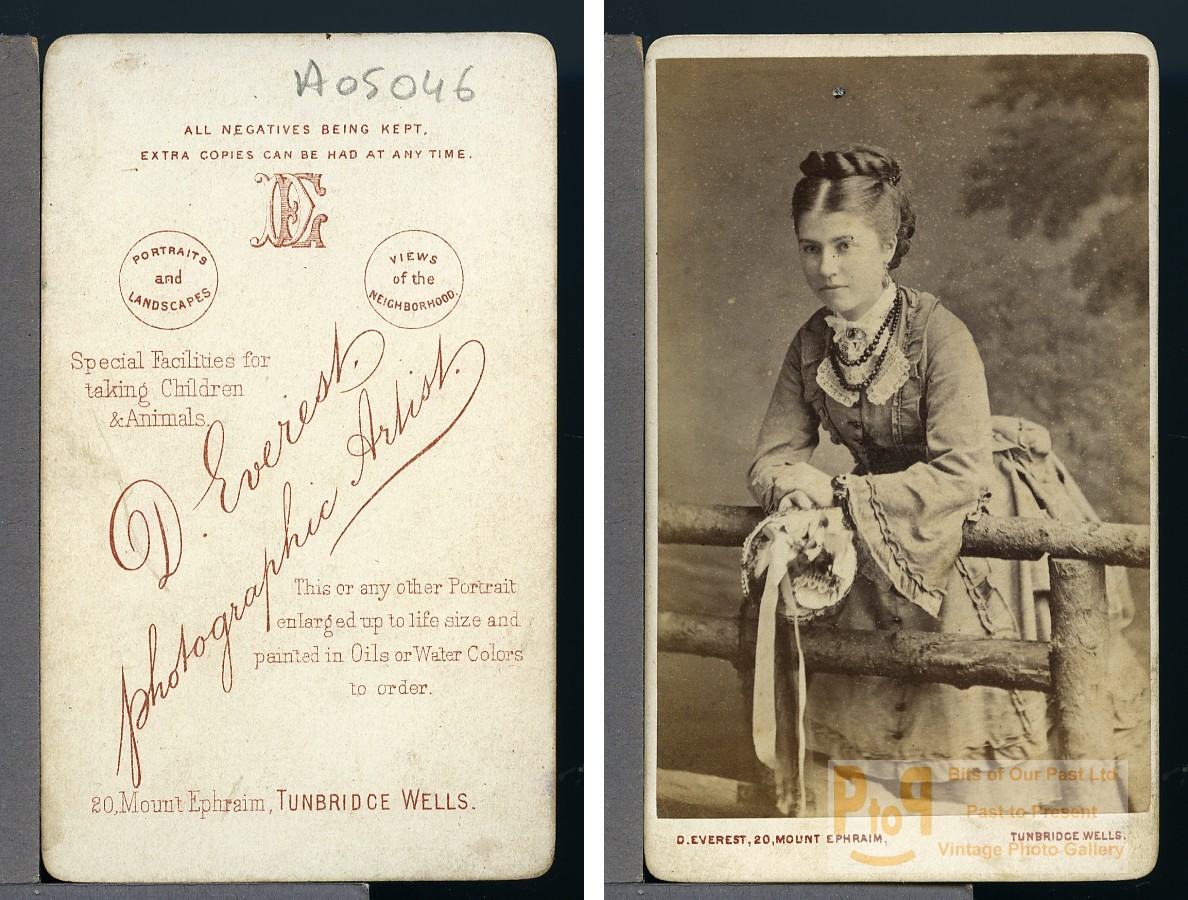 A05046
ALL NEGATIVES BEING KEPT,
EXTRA COPIES CAN BE HAD AT ANY TIME.
DE
PORTRAITS
and
LANDSCAPES
VIEWS
of the
NEIGHBORHOOD.
Special Facilities for
taking Children
& Animals.
D. Everest.
photographic Artist.
This or any other Portrait
enlarged up to life size and
painted in Oils or Water Colors
to order.
20, Mount Ephraim, TUNBRIDGE WELLS.
PtoP
Bits of Our Past Ltd
Past to Present
Vintage Photo Gallery
D. EVEREST, 20, MOUNT EPHRAIM, TUNBRIDGE WELLS.